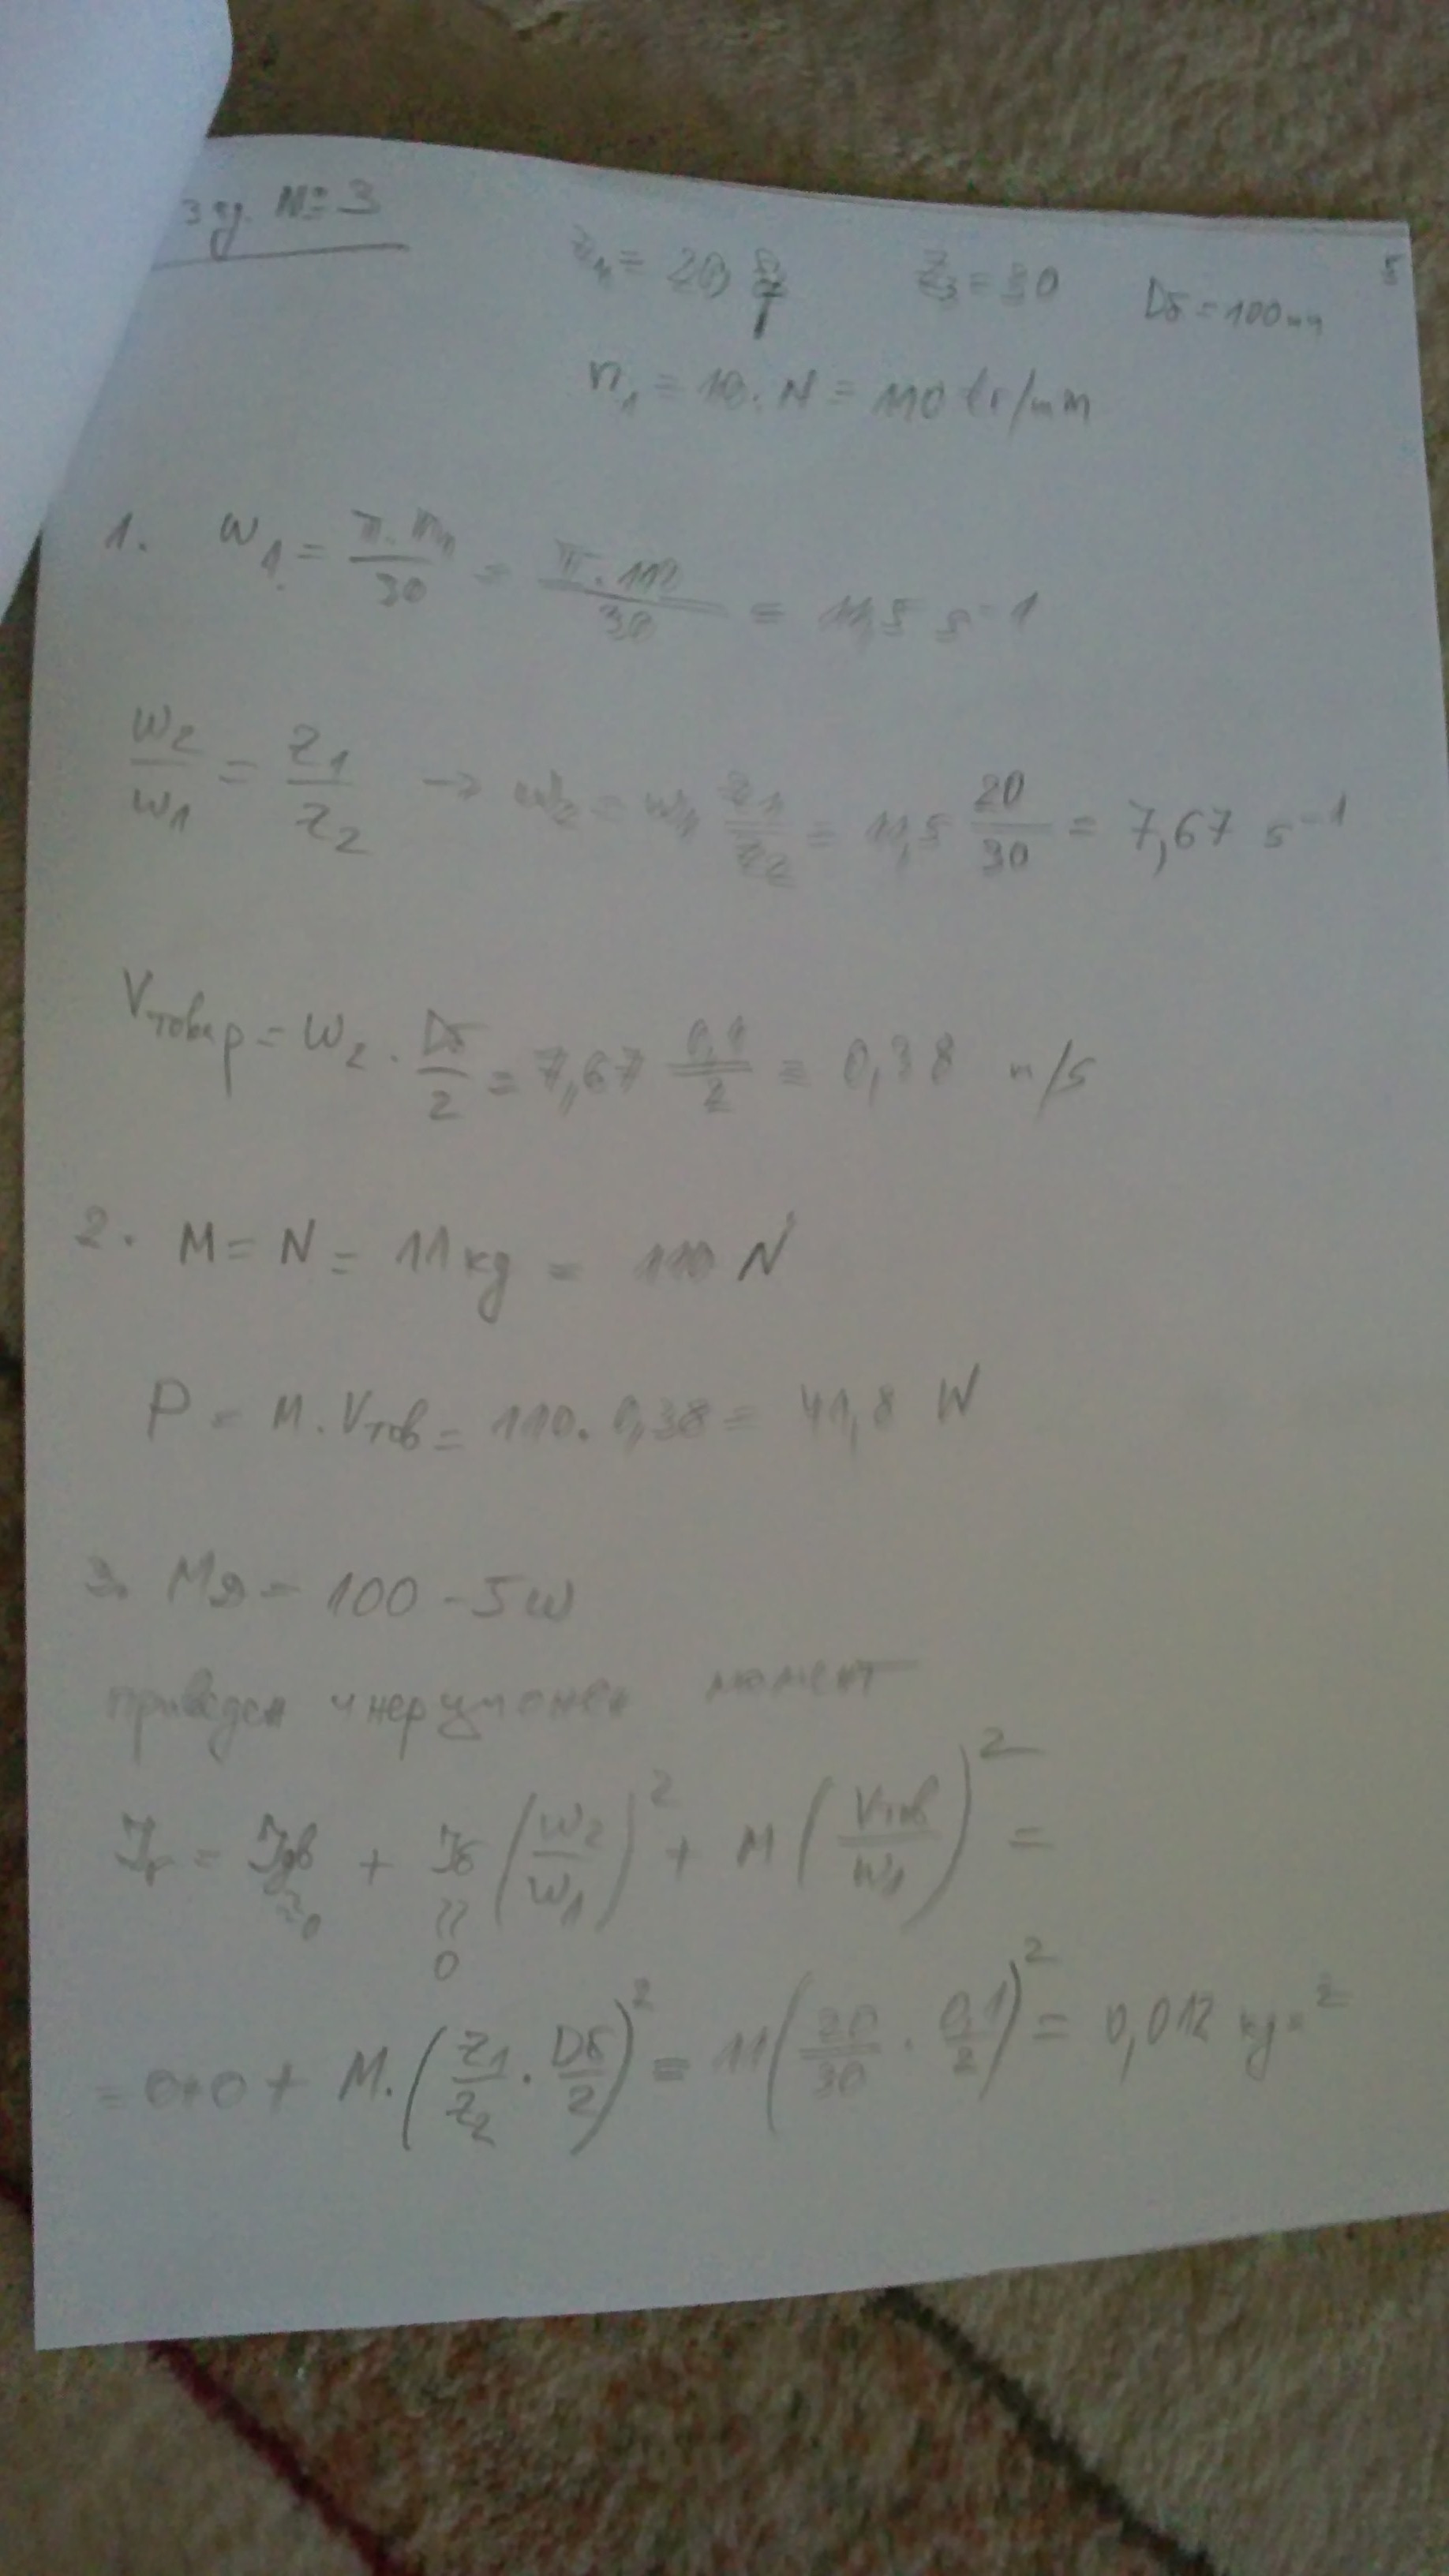 зад. №3
5
z₁ = 20 z₃ = 30 Dб = 100mm
n₁ = 10. N = 110 tr/min
1. ω₁ = π.n₁/30 = π.110/30 = 11,5 s⁻¹
ω₂/ω₁ = z₁/z₂ → ω₂ = ω₁ z₁/z₂ = 11,5 20/30 = 7,67 s⁻¹
Vтовар = ω₂ . Dб/2 = 7,67 0,1/2 = 0,38 m/s
2. M = N = 11 kg = 110 N
P = M. Vтов = 110. 0,38 = 41,8 W
3. Mд = 100 - 5ω
приведен инерционен момент
Jr = Jдв + Jб (ω₂/ω₁)² + M (Vтов/ω₁)² =
≈0 = 0
= 0+0+ M. (z₁/z₂ . Dб/2)² = 11 (20/30 . 0,1/2)² = 0,012 kgm²